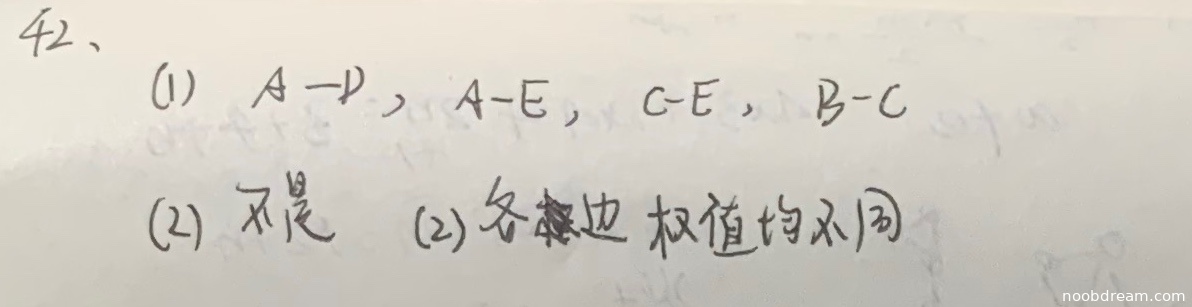 42、
(1) A-D, A-E, C-E, B-C
(2) 不是 (2) 各边权值均不同
noobdream.com